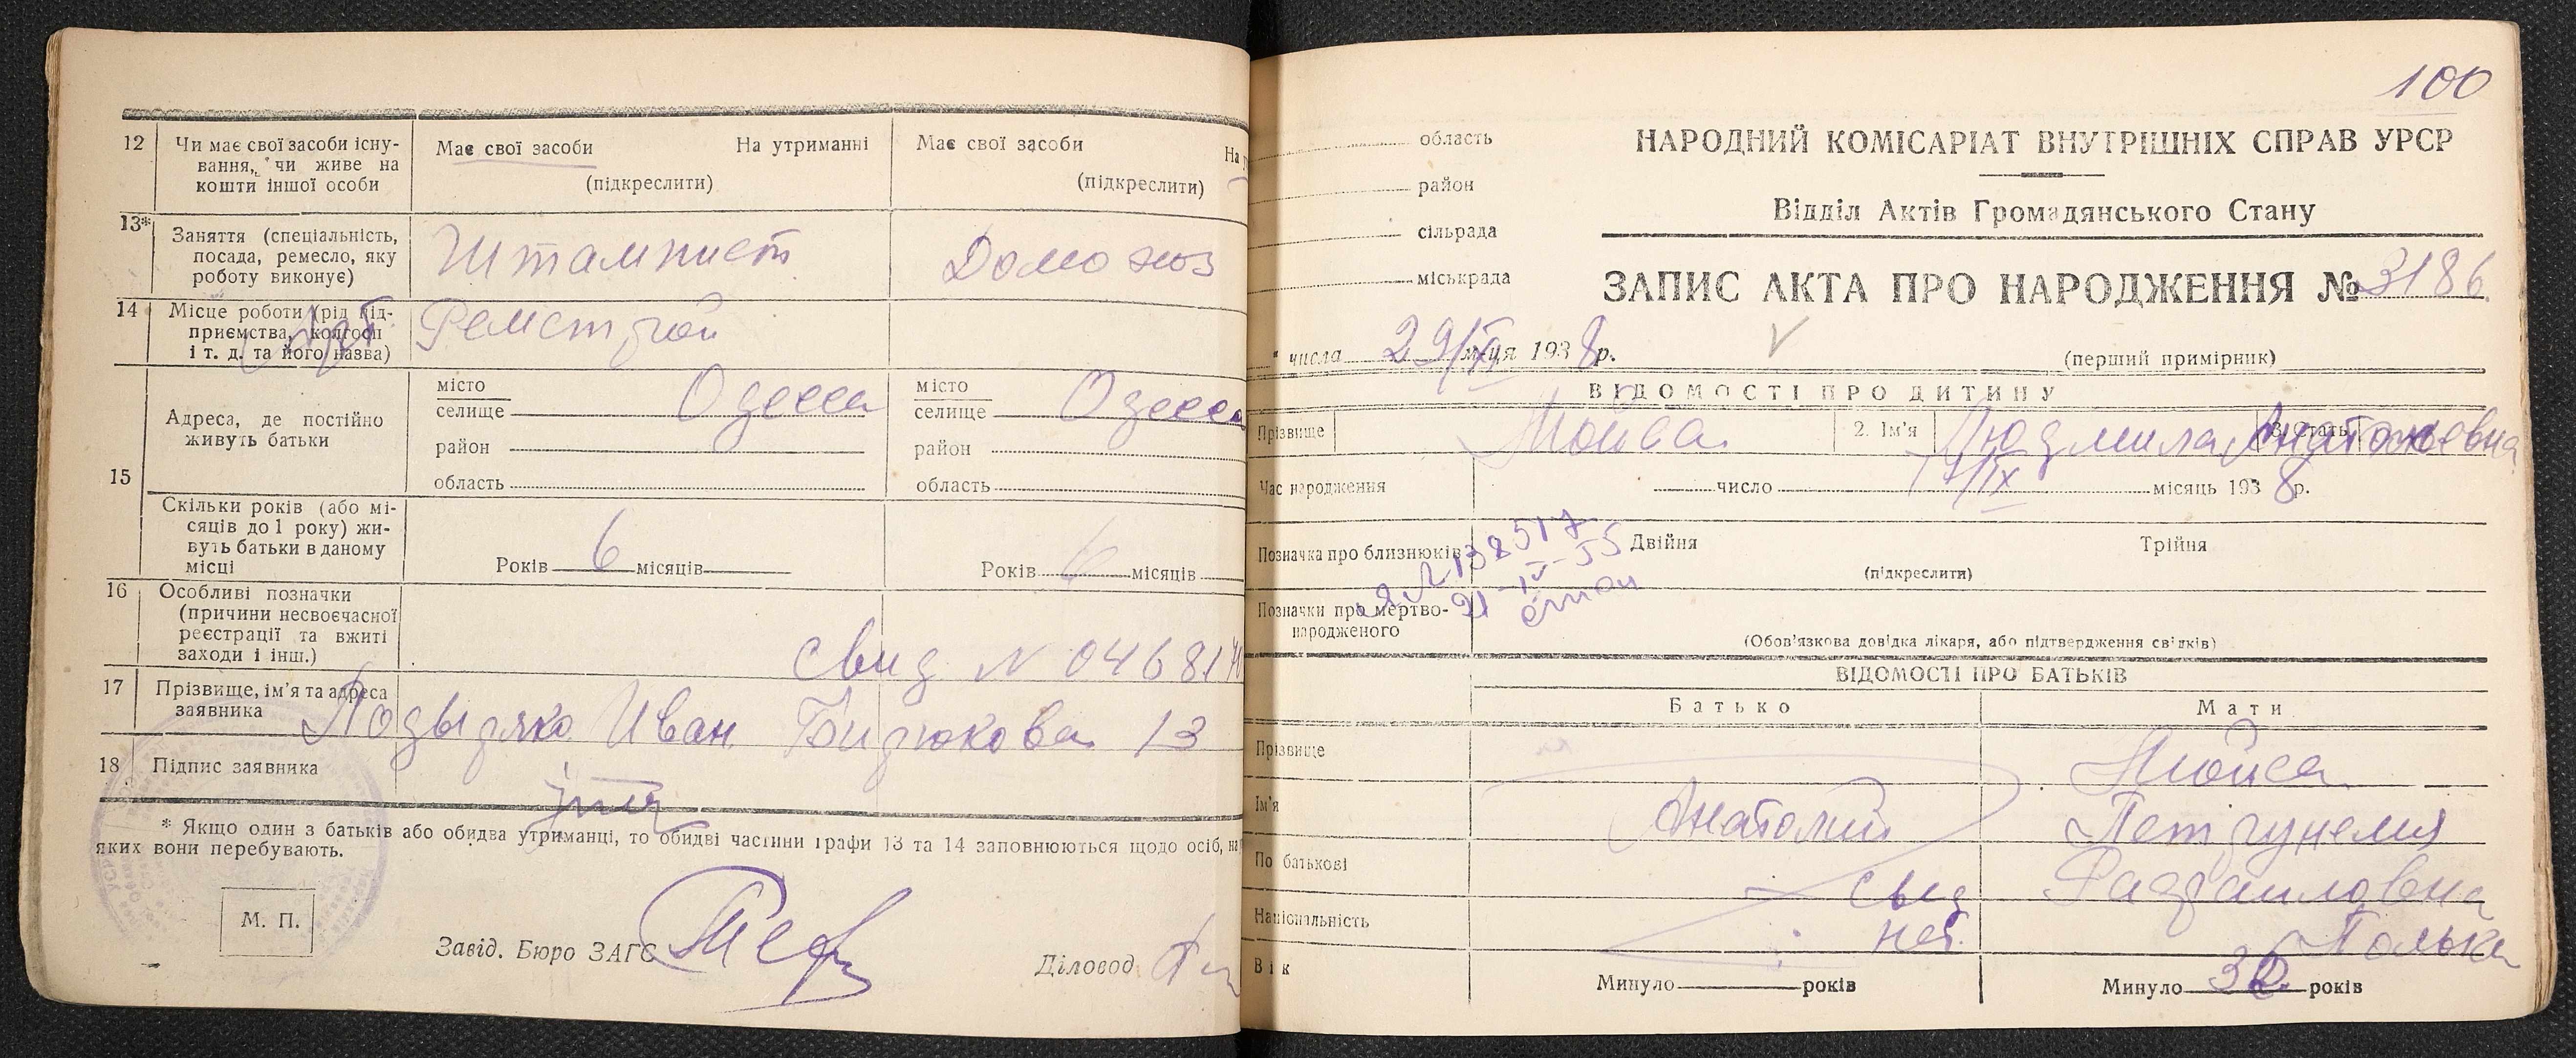 12
Чи має свої засоби існу-
вання, чи живе на
кошти іншої особи
Має свої засоби На утриманні
(підкреслити)
Має свої засоби На
(підкреслити)
13*
Заняття (спеціальність,
посада, ремесло, яку
роботу виконує)
Штампист
Домохоз
14
Місце роботи (рід під-
приємства, колгосп
і т. д. та його назва)
Арт. Ремстрой
15
Адреса, де постійно
живуть батьки
місто
селище Одесса
район
область
місто
селище Одесса
район
область
Скільки років (або мі-
сяців до 1 року) жи-
вуть батьки в даному
місці
Років 6 місяців
Років 6 місяців
16
Особливі позначки
(причини несвоєчасної
реєстрації та вжиті
заходи і інш.)
Свид N 04681
17
Прізвище, ім'я та адреса
заявника
Иван Бирюкова 13
18
Підпис заявника
* Якщо один з батьків або обидва утриманці, то обидві частини графи 13 та 14 заповнюються щодо осіб, на
яких вони перебувають.
М. П.
Завід. Бюро ЗАГС
Діловод
100
область
район
сільрада
міськрада
НАРОДНИЙ КОМІСАРІАТ ВНУТРІШНІХ СПРАВ УРСР
Відділ Актів Громадянського Стану
ЗАПИС АКТА ПРО НАРОДЖЕННЯ № 3186
" числа 29/IX м-ця 1938 р.
(перший примірник)
ВІДОМОСТІ ПРО ДИТИНУ
Прізвище Мойса 2. Ім'я Людмила Анатольевна 3. Стать
Час народження число 17/IX місяць 1938 р.
Позначка про близнюків Двійня Трійня
(підкреслити)
ЯЛ 138517
21-IV-55
Позначки про мертво-
народженого
(Обов'язкова довідка лікаря, або підтвердження свідків)
ВІДОМОСТІ ПРО БАТЬКІВ
Батько Мати
Прізвище Мойса
Ім'я Анатолий Петрунеля
По батькові свид Рафаиловна
Національність нет. Полька
Вік Минуло років Минуло років